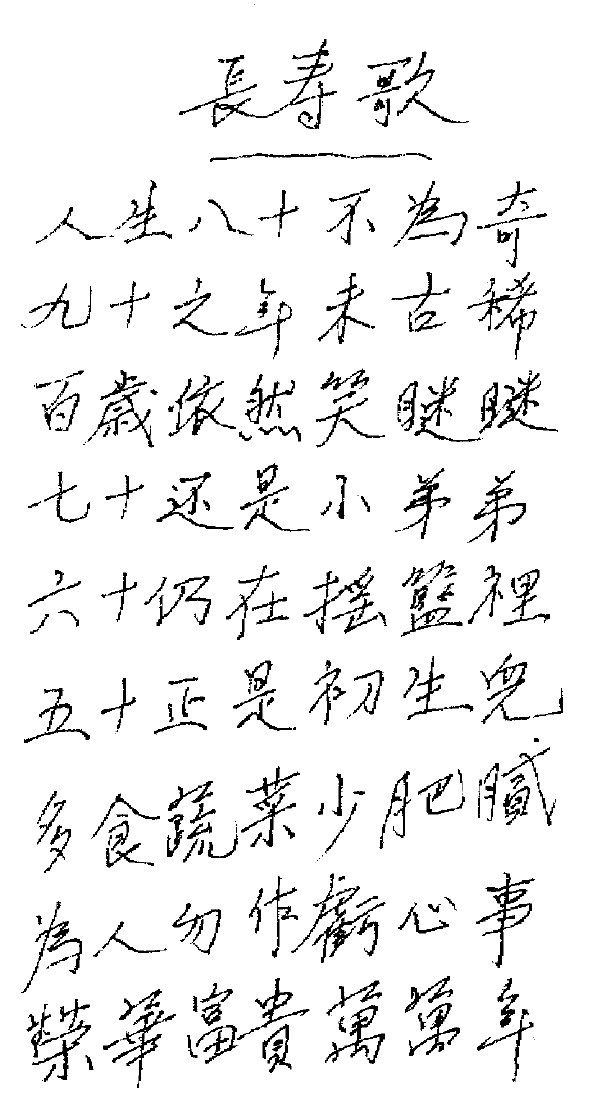 長寿歌
人生八十不為奇
九十之年未古稀
百歲依然笑瞇瞇
七十还是小弟弟
六十仍在摇籃裡
五十正是初生兒
多食蔬菜少肥膩
為人勿作虧心事
榮華富貴萬萬年